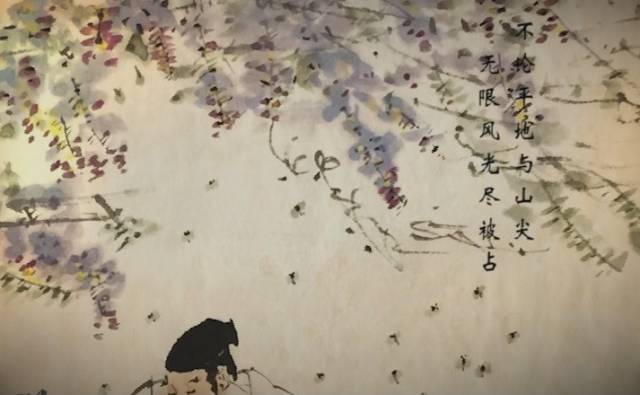 不轮平地与山尖
无限风光尽被占